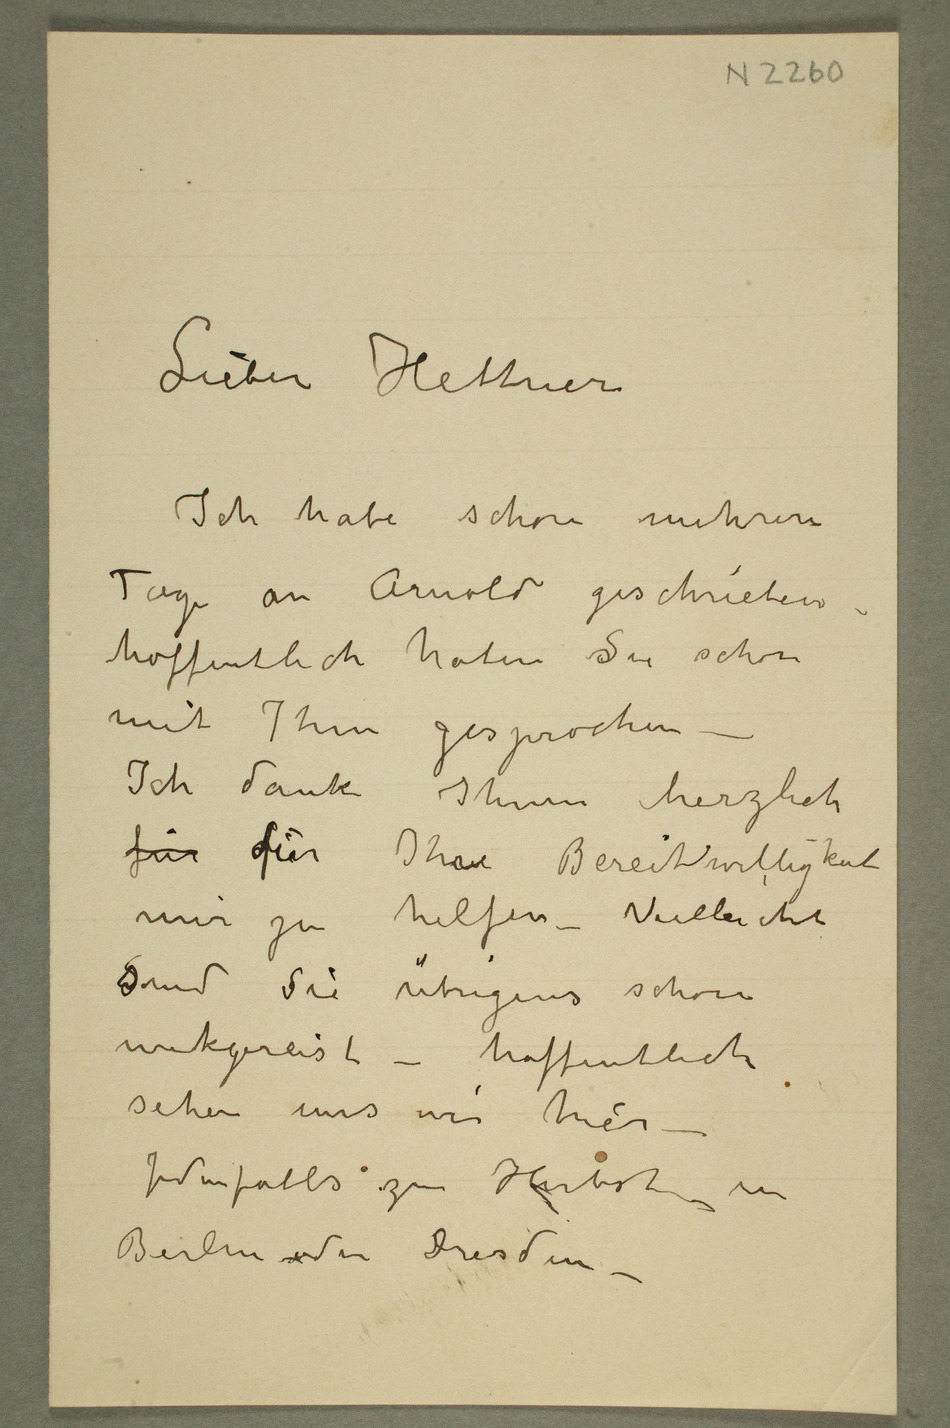 N 2260
Lieber Hettner
Ich habe schon mehrere
Tage an Arnold geschrieben –
hoffentlich haben Sie schon
mit Ihm gesprochen —
Ich danke Ihnen herzlich
für für Ihre Bereitwilligkeit
mir zu helfen – Vielleicht
Sind Sie übrigens schon
wekgereist – hoffentlich
sehen uns wir hier —
Jedenfalls zum Herbst – in
Berlin oder Dresden —